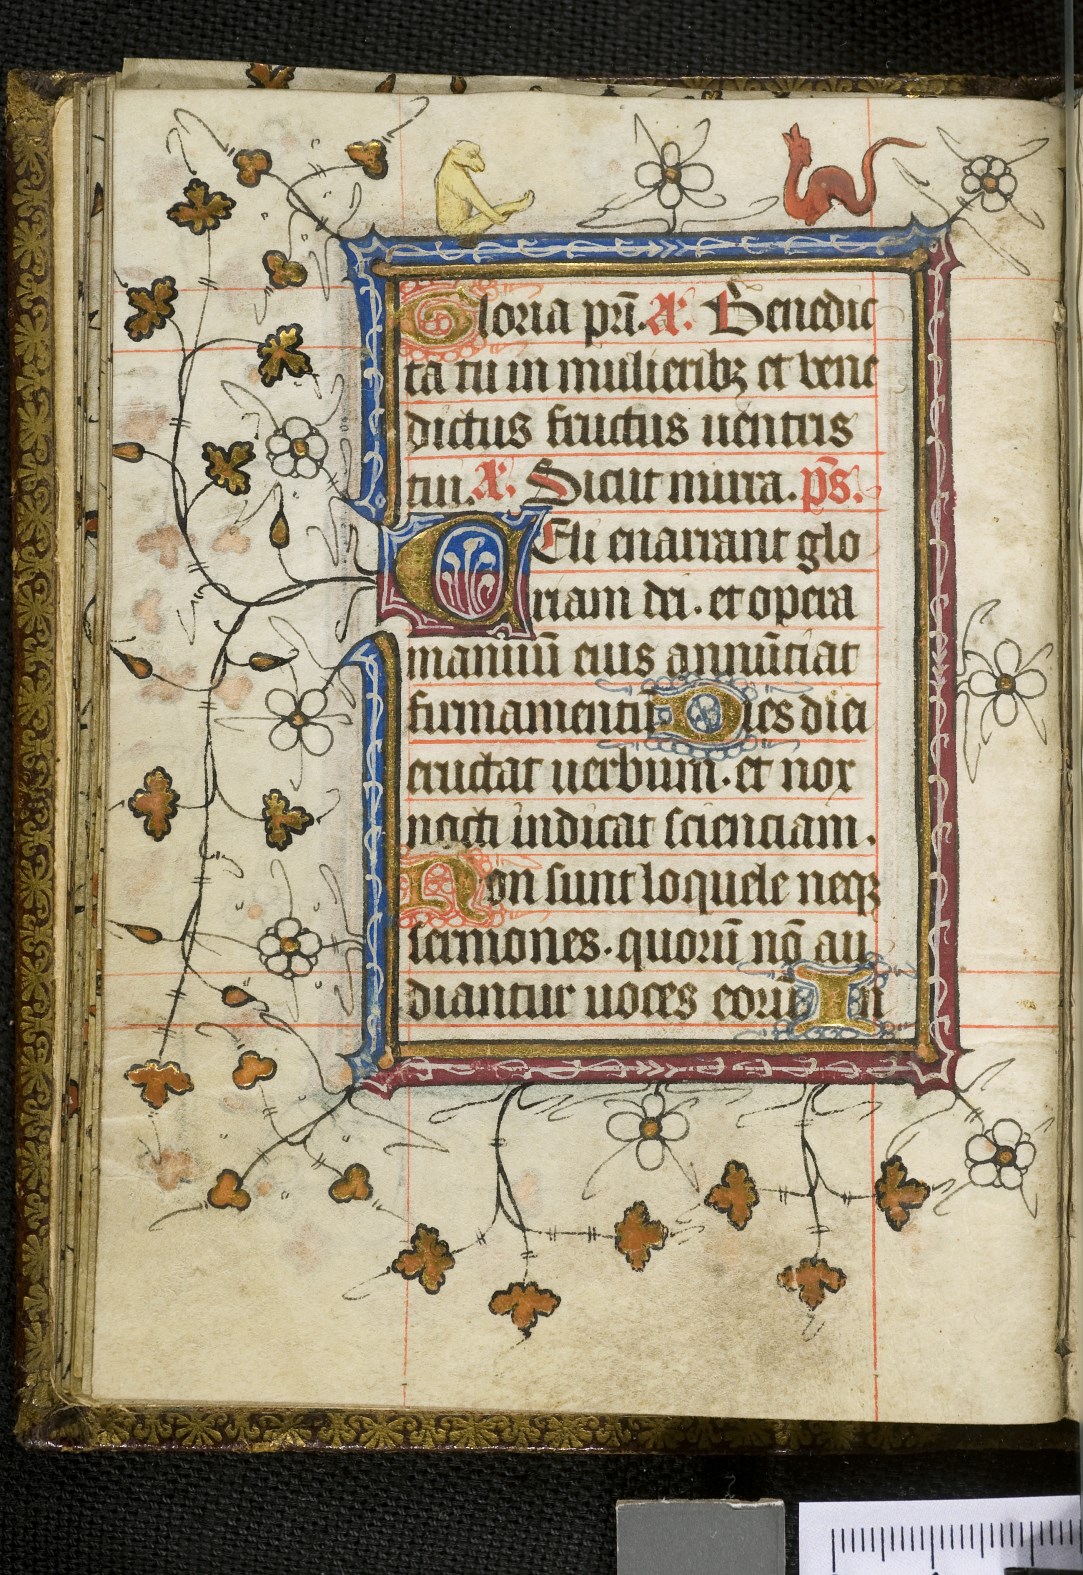 Gloria pr̄i. A᷎. Benedic
ta tu in mulieribꝫ et bene
dictus fructus uentris
tui. A᷎. Sicut mirra. p̄s.
CEli enarrant glo
riam dei. et opera
manuū eius annūciat
firmamentū Dies diei
eructat uerbum. et nox
nocti indicat scienciam.
Non sunt loquele neqꝫ
sermones. quorū nō au
diantur uoces eorū In